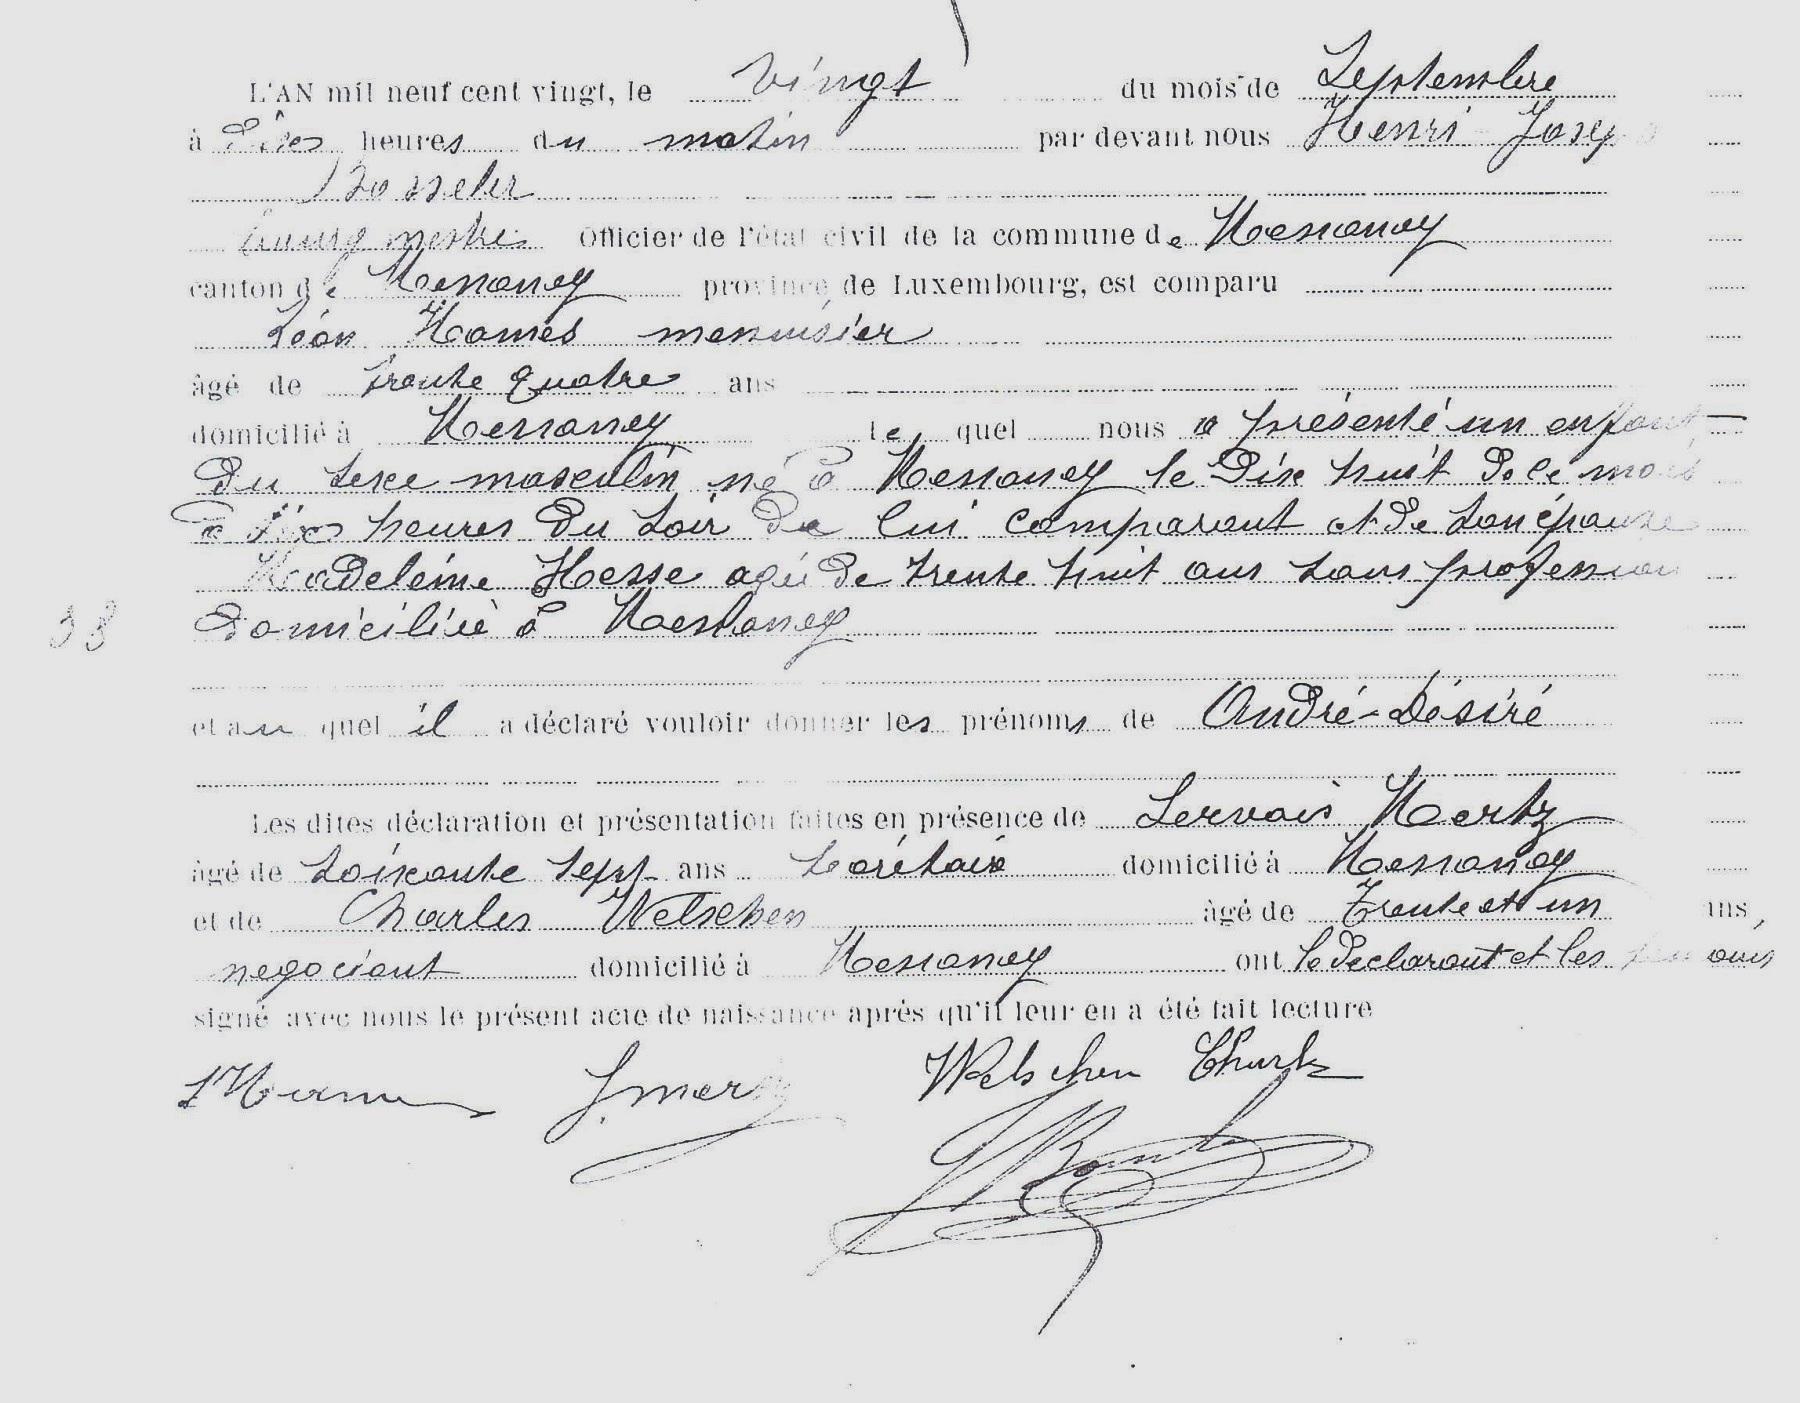 L'AN mil neuf cent vingt, le vingt du mois de Septembre
à dix heures du matin par devant nous Henri Joseph
Bosseler
bourgmestre Officier de l'état civil de la commune de Messancy
canton de Messancy province de Luxembourg, est comparu
Léon Hames menuisier
âgé de trente quatre ans
domicilié à Messancy le quel nous a présenté un enfant
du sexe masculin né à Messancy le dix huit de ce mois
à dix heures du soir de lui comparant et de son épouse
Madeleine Hesse agée de trente huit ans sans profession
38 domiciliée à Messancy
et au quel il a déclaré vouloir donner les prénoms de André-Désiré
Les dites déclaration et présentation faites en présence de Servais Mertz
âgé de soixante sept ans secrétaire domicilié à Messancy
et de Charles Welschen âgé de trente et un ans,
negociant domicilié à Messancy ont le declarant et les témoins
signé avec nous le présent acte de naissance après qu'il leur en a été fait lecture
Welschen Charles